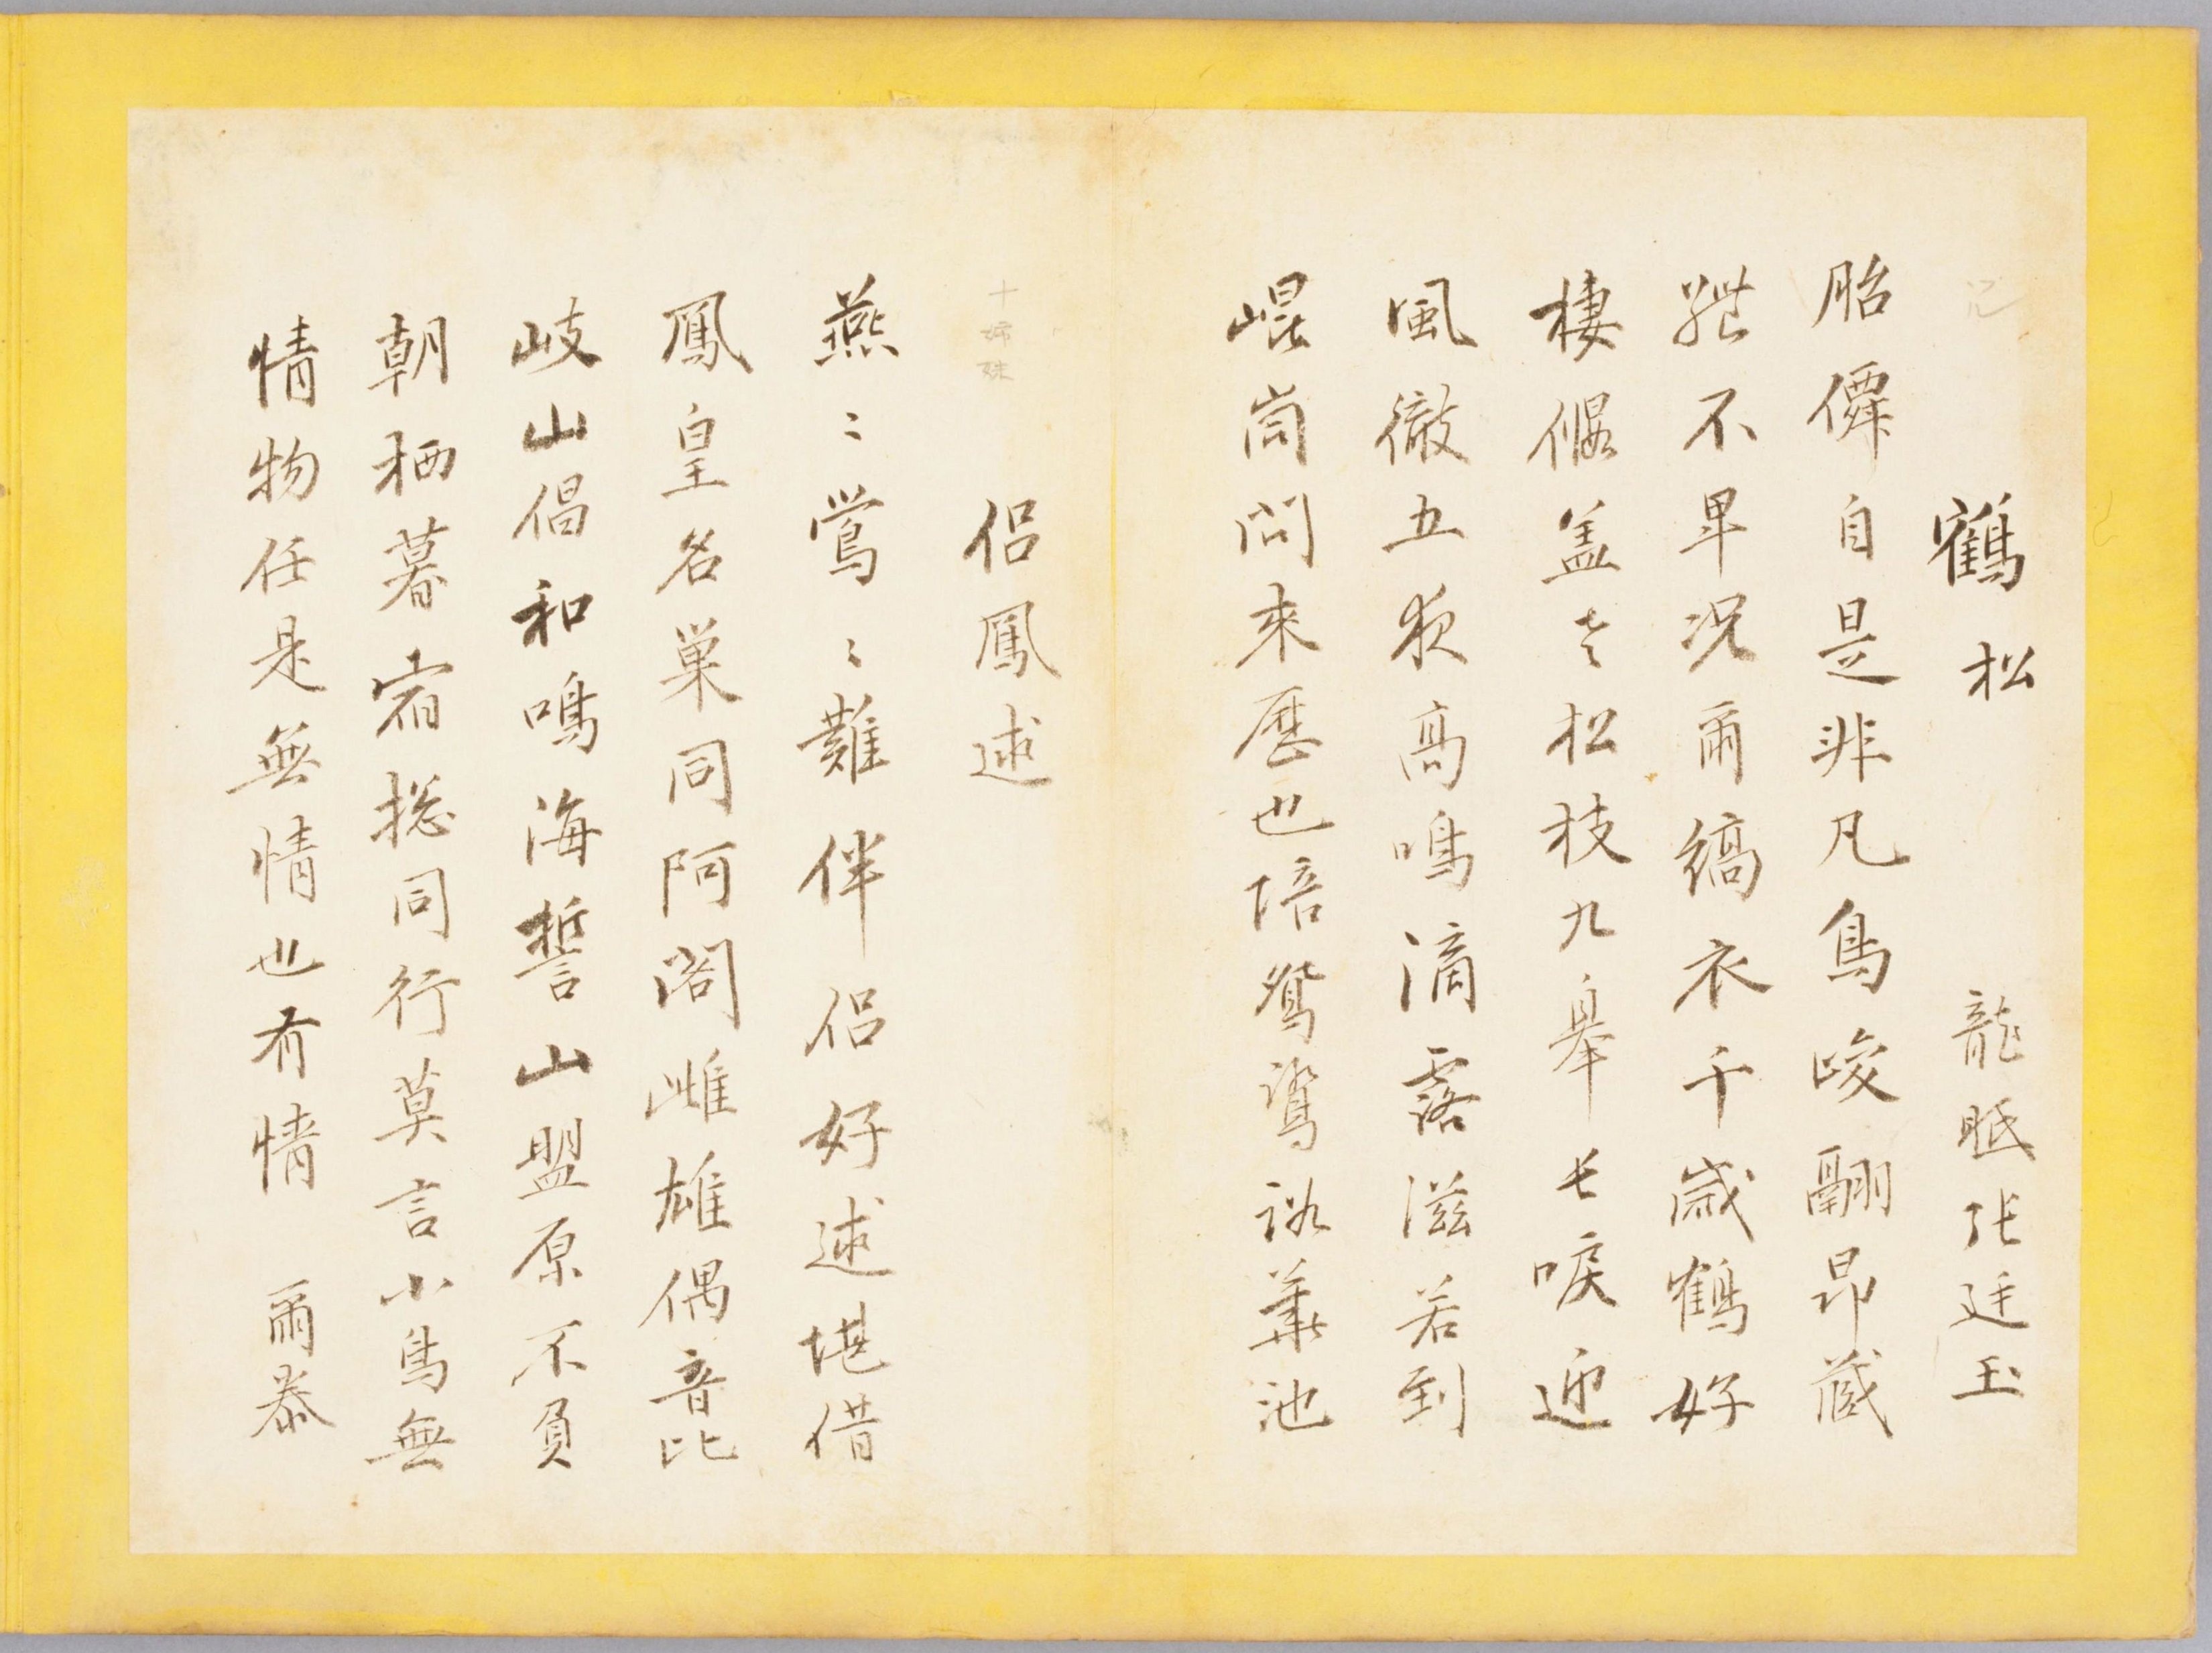 鶴松　龍眠張廷玉
胎僊自是非凡鳥峻翮昂藏
殊不卑況爾縞衣千歲鶴好
棲偃盖老松枝九皋長唳迎
風徹五夜高鳴滴露滋若到
崐崗問來歷也陪鴛鷺浴華池
侶鳳逑
十姊妹
燕〻鶯〻難伴侶好逑堪借
鳳皇名巢同阿閣雌雄偶音比
岐山倡和鳴海誓山盟原不負
朝栖暮宿摠同行莫言小鳥無
情物任是無情也有情　爾泰